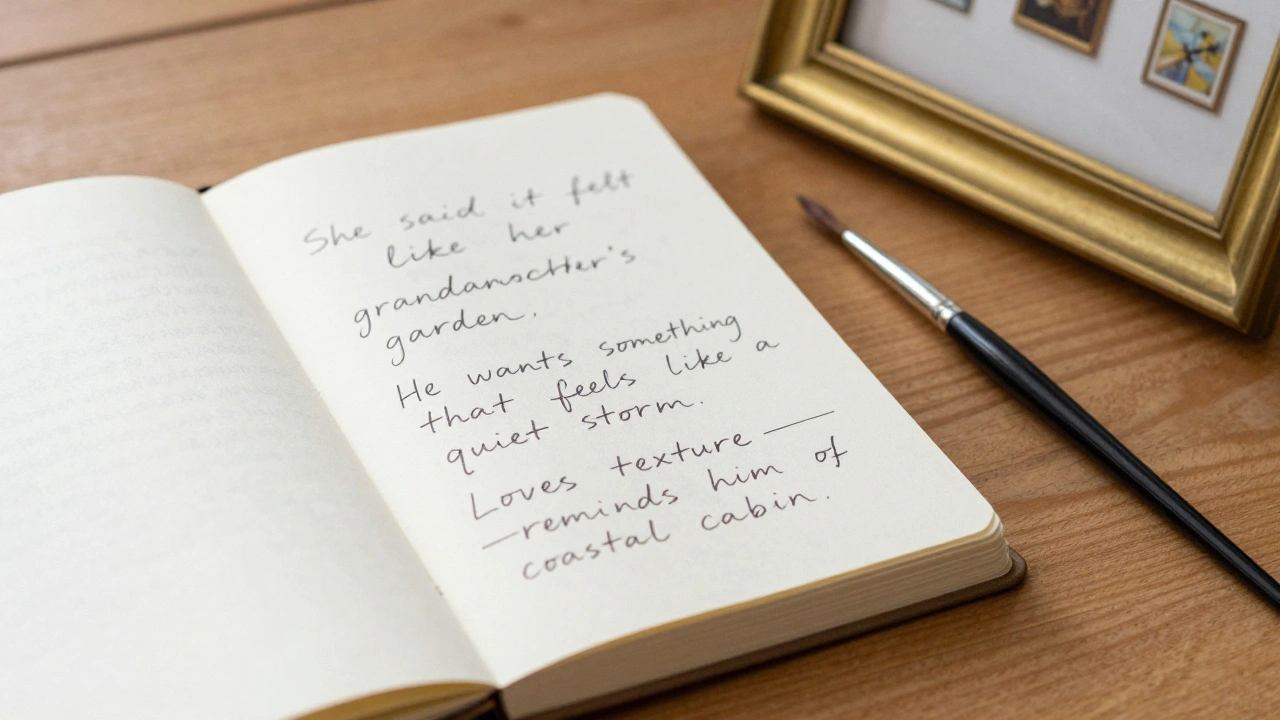 She said it felt
like her
grandamscttter's
garden.
He wants something
that feels like a
quiet storm.
Loves texture —
—reminds him of
coastal cabin.